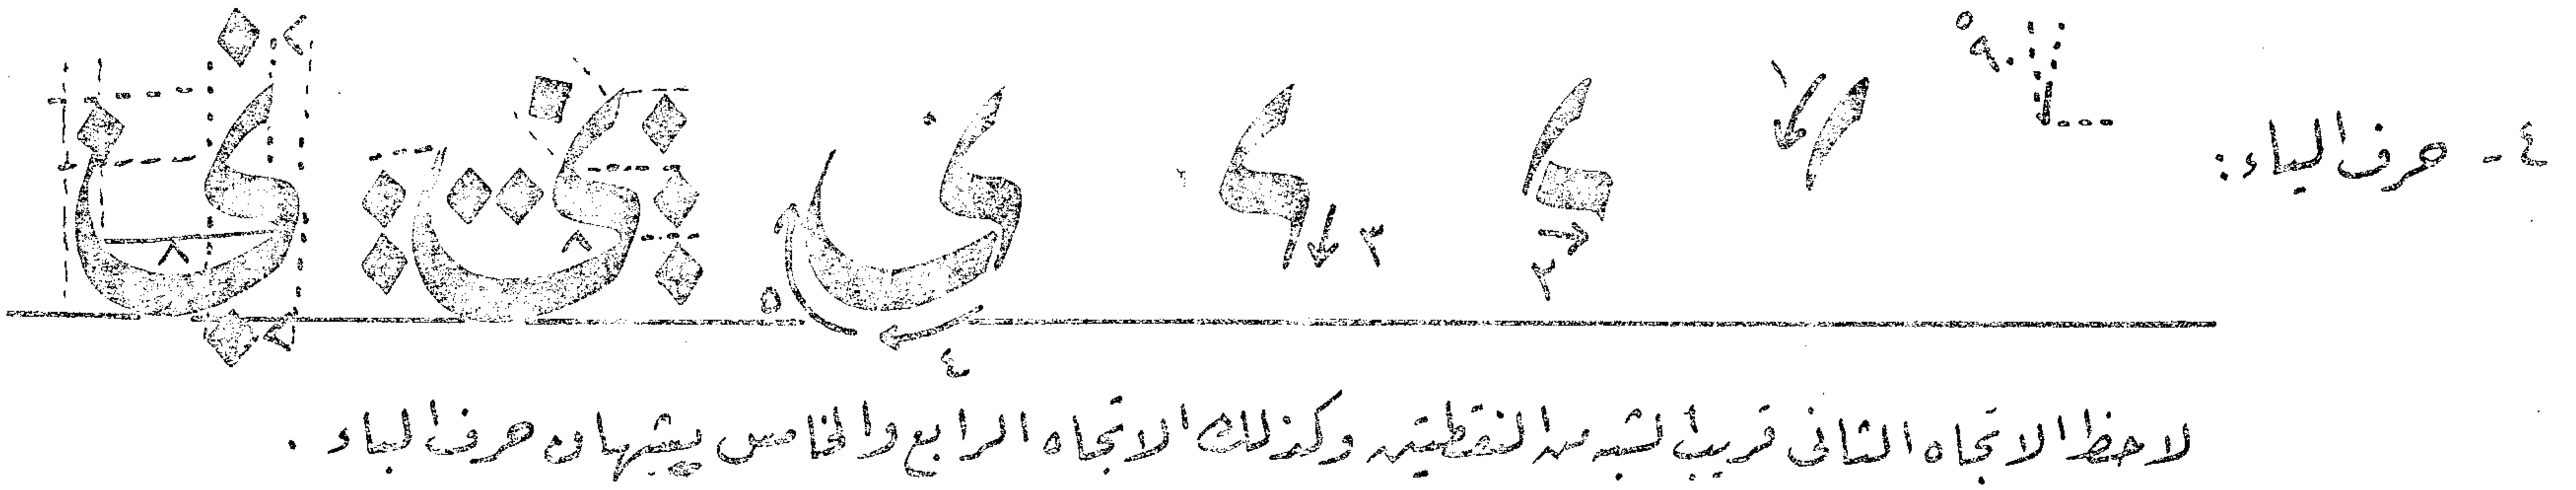 ٤ - حرف الياء :
٩٠°
١
٢
٣
٤
٥
لاحظ الاتجاه الثاني قريب الشبه من النقطتين وكذلك الاتجاه الرابع والخامس يشبهان حرف الباء .